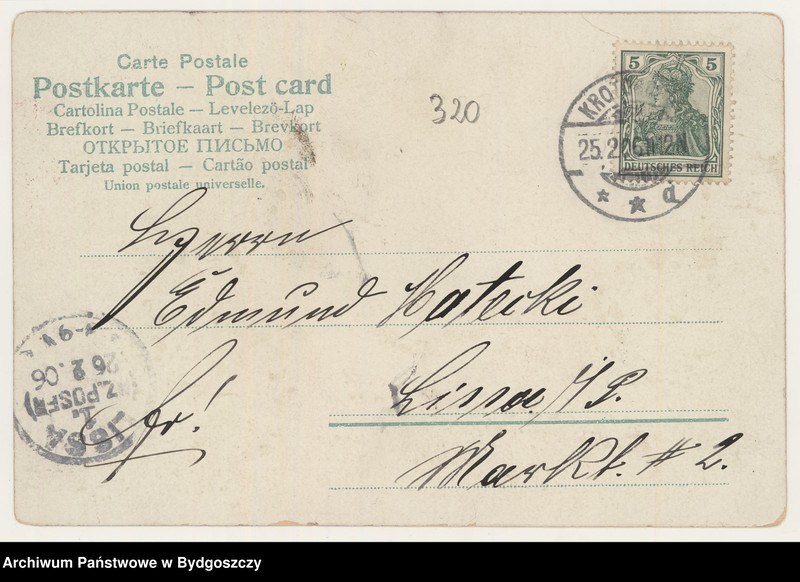 Carte Postale
Postkarte — Post card
Cartolina Postale — Levelező-Lap
Brefkort — Briefkaart — Brevkort
ОТКРЫТОЕ ПИСЬМО
Tarjeta postal — Cartão postal
Union postale universelle.
320
5 5
DEUTSCHES REICH
KROT
25.2.06
Herrn
Edmund Hatecki
Lissa i/P.
Fr!
Markt. # 2.
26.2.06
(BZ. POSEN)
1.
LISSA
Archiwum Państwowe w Bydgoszczy